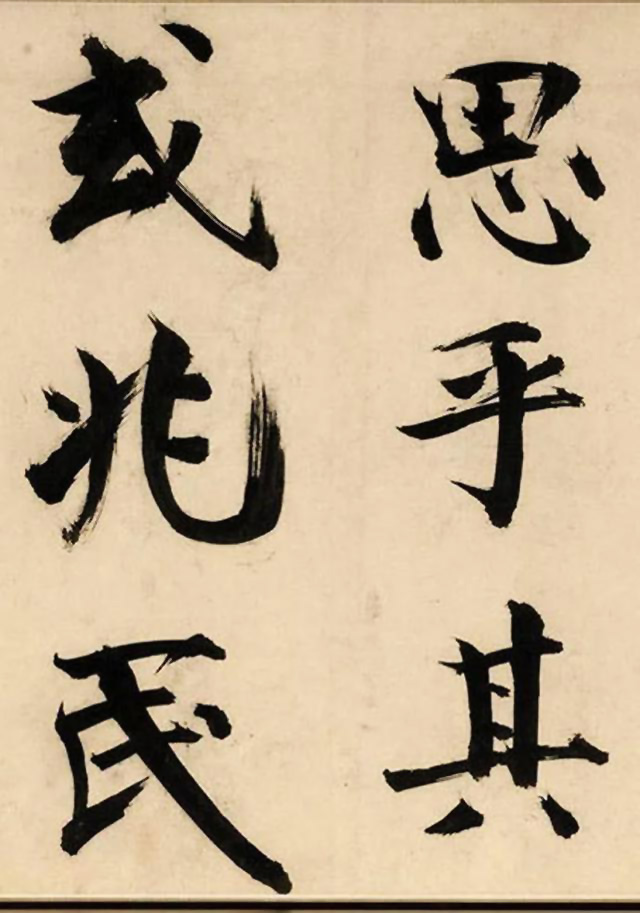 思乎其
或兆民